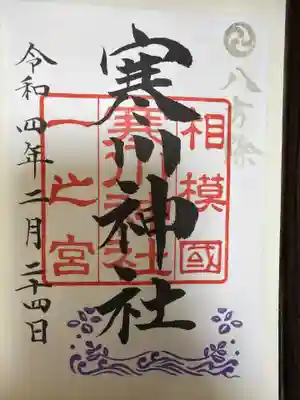 八方除
寒川神社
相模國
寒川神社
一之宮
令和四年二月二十四日